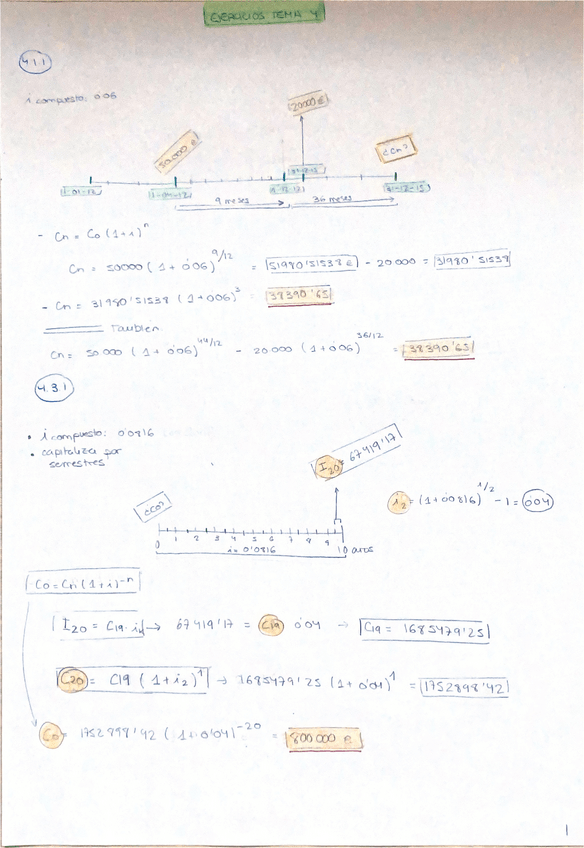 EJERCICIOS TEMA 4
4.1.1
i compuesto: 0'06
20000 €
50.000 €
¿Cn?
1-04-12
31-12-15
9 meses
36 meses
- Cn = Co (1+i)^n
Cn = 50000 (1 + 0'06)^9/12 = 51980'51538 € - 20000 = 31980'51538
- Cn = 31980'51538 (1+0'06)^3 = 38390'65
También
Cn = 50000 (1 + 0'06) - 20000 (1+0'06)^36/12 = 38390'65
4.3.1
• i compuesto: 0'0816
• capitaliza por
semestres
I20 = 67419'17
i2 = (1+0'0816)^1/2 - 1 = 0'04
¿Co?
0 1 2 3 4 5 6 7 8 9 10 años
i = 0'0816
Co = Cn (1+i)^-n
I20 = C19 · i2 → 67419'17 = C19 0'04 → C19 = 1685479'25
C20 = C19 (1+i2)^1 → 1685479'25 (1+0'04)^1 = 1752898'42
Co = 1752898'42 (1+0'04)^-20 = 800000 €
1